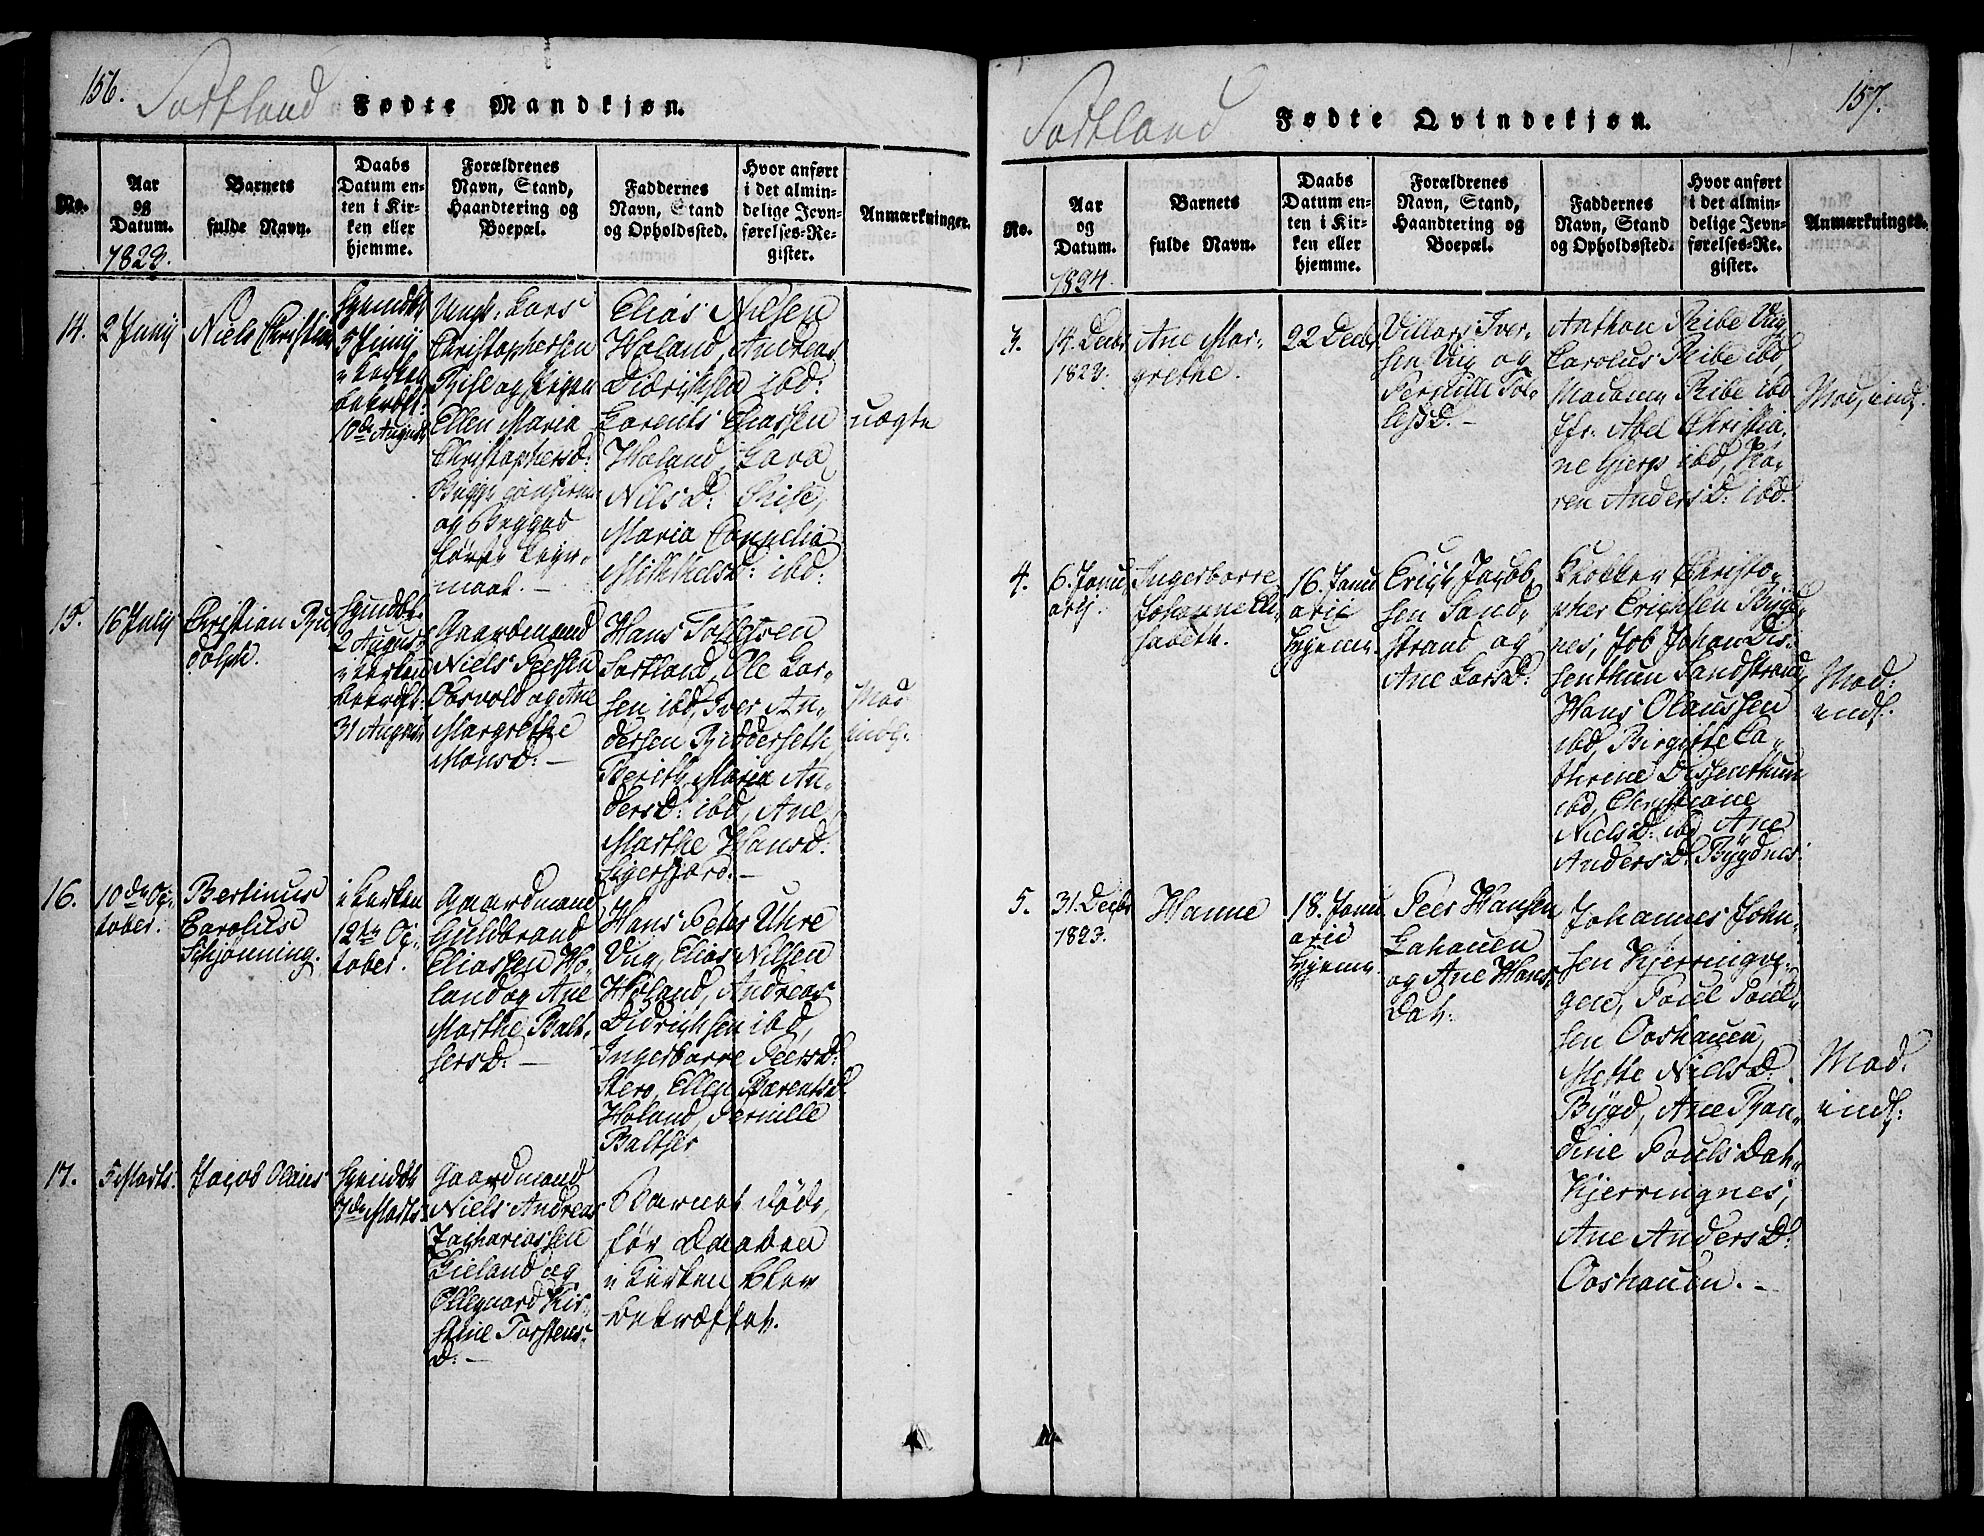 156.
Sortland
Fødte Mandkjøn.
No.
Aar
og
Datum.
1823.
Barnets
fulde Navn.
Daabs
Datum en-
ten i Kir-
ken eller
hjemme.
Forældrenes
Navn, Stand,
Haandtering og
Boepæl.
Faddernes
Navn, Stand
og Opholdssted.
Hvor anført
i det almin-
delige Jevn-
førelses-Re-
gister.
Anmærkninger.
14.
2 Junij
Niels Christian
hjemdøbt
5 Junij
i Kirken
bekræft:
10de August
Ungk. Lars
Christophersen
Rise og Pigen
Ellen Maria
Christophersd:
Begge
og Begges
første Leier-
maal. -
Elias Nilsen
Holand, Andreas
Didrichsen ibd:
Lorents Eliassen
Holand, Lava
Nilsd: Rise,
Maria Cornelia
Mikkelsd: ibd:
uægte
15.
16 Julij
Christian Ru
dolph.
hjemdøbt
2 August
i Kirken
bekræft:
31 August
Gaardmand
Niels Peersen
og Ane
Margrethe
Monsd: -
Hans Tostensen
Sortland, Ole Lar-
sen ibd, Iver An-
dersen Ridderseth
Berith Maria An-
dersd: ibd, Ane
Marthe Hansd:
Sigerfjord. -
Mod.
16.
10de Oc-
tober.
Bertinus
Carolus
Schjønning.
i Kirken
12te Oc-
tober.
Gaardmand
Guldbrand
Eliassen Ho-
land og Ane
Marthe Balt-
sersd: -
Hans Peter Uhre
Vug, Elias Nilsen
Holand, Andreas
Didrichsen ibd,
Ingerborre Peersd:
Stero, Ellen Bærentsd.
Holand, Pernille
Baltser
17.
5 Marts.
Jacob Olaus
hjemdøbt
7de Marts.
Gaardmand
Niels Andreas
Zachariassen
Lieland og
Ellegaard Kir-
stine Torstens-
D: -
Barnet døde,
før Daaben
i Kirken blev
bekræftet.
157.
Sortland
Fødte Qvindekjøn.
No.
Aar
og
Datum.
1824.
Barnets
fulde Navn.
Daabs
Datum en-
ten i Kir-
ken eller
hjemme.
Forældrenes
Navn, Stand,
Haandtering og
Boepæl.
Faddernes
Navn, Stand
og Opholdssted.
Hvor anført
i det almin-
delige Jevn-
førelses-Re-
gister.
Anmærkninger.
3.
14. Decbr
1823.
Ane Mar-
grethe.
22 Decbr
Villars Iver-
sen Vig og
Pernille Tol-
lefsD. -
Anthon Ribe Vig
Carolus Ribe ibd,
Madame Ribe ibd
Jfr. Abel Christia-
ne Gjerss ibd, Ka-
ren AndersD: ibd.
4.
6. Janu
arij.
Ingerborre
Johanne Eli-
sabeth.
16. Janu
arii
hjemme.
Erich Jacob-
sen Sand-
strand og
Ane LarsD:
Klokker Christo-
pher Erichsen Bygd-
nes, Job Johan Dis-
senthun Sandstrand
Hans Olaussen
ibd, Birgitte Ca-
thrine Dissenthun
ibd, Christiane
NielsD: ibd, Ane
AndersD: Bygdnes.
Mod.
indf:
5.
31. Decbr
1823.
Hanne
18. Janu
arii
hjemme.
Peer Hansen
Gahauen
og Ane Hans
Dat:
Johannes John-
sen Kjerringv-
gen, Poul Poul-
sen Ooshauen,
Mette NielsD.
Bygd, Ane Ran-
dine Pouls Dat:
Kjerringnes,
Ane AndersD:
Ooshauen. -
Mod.
indf: